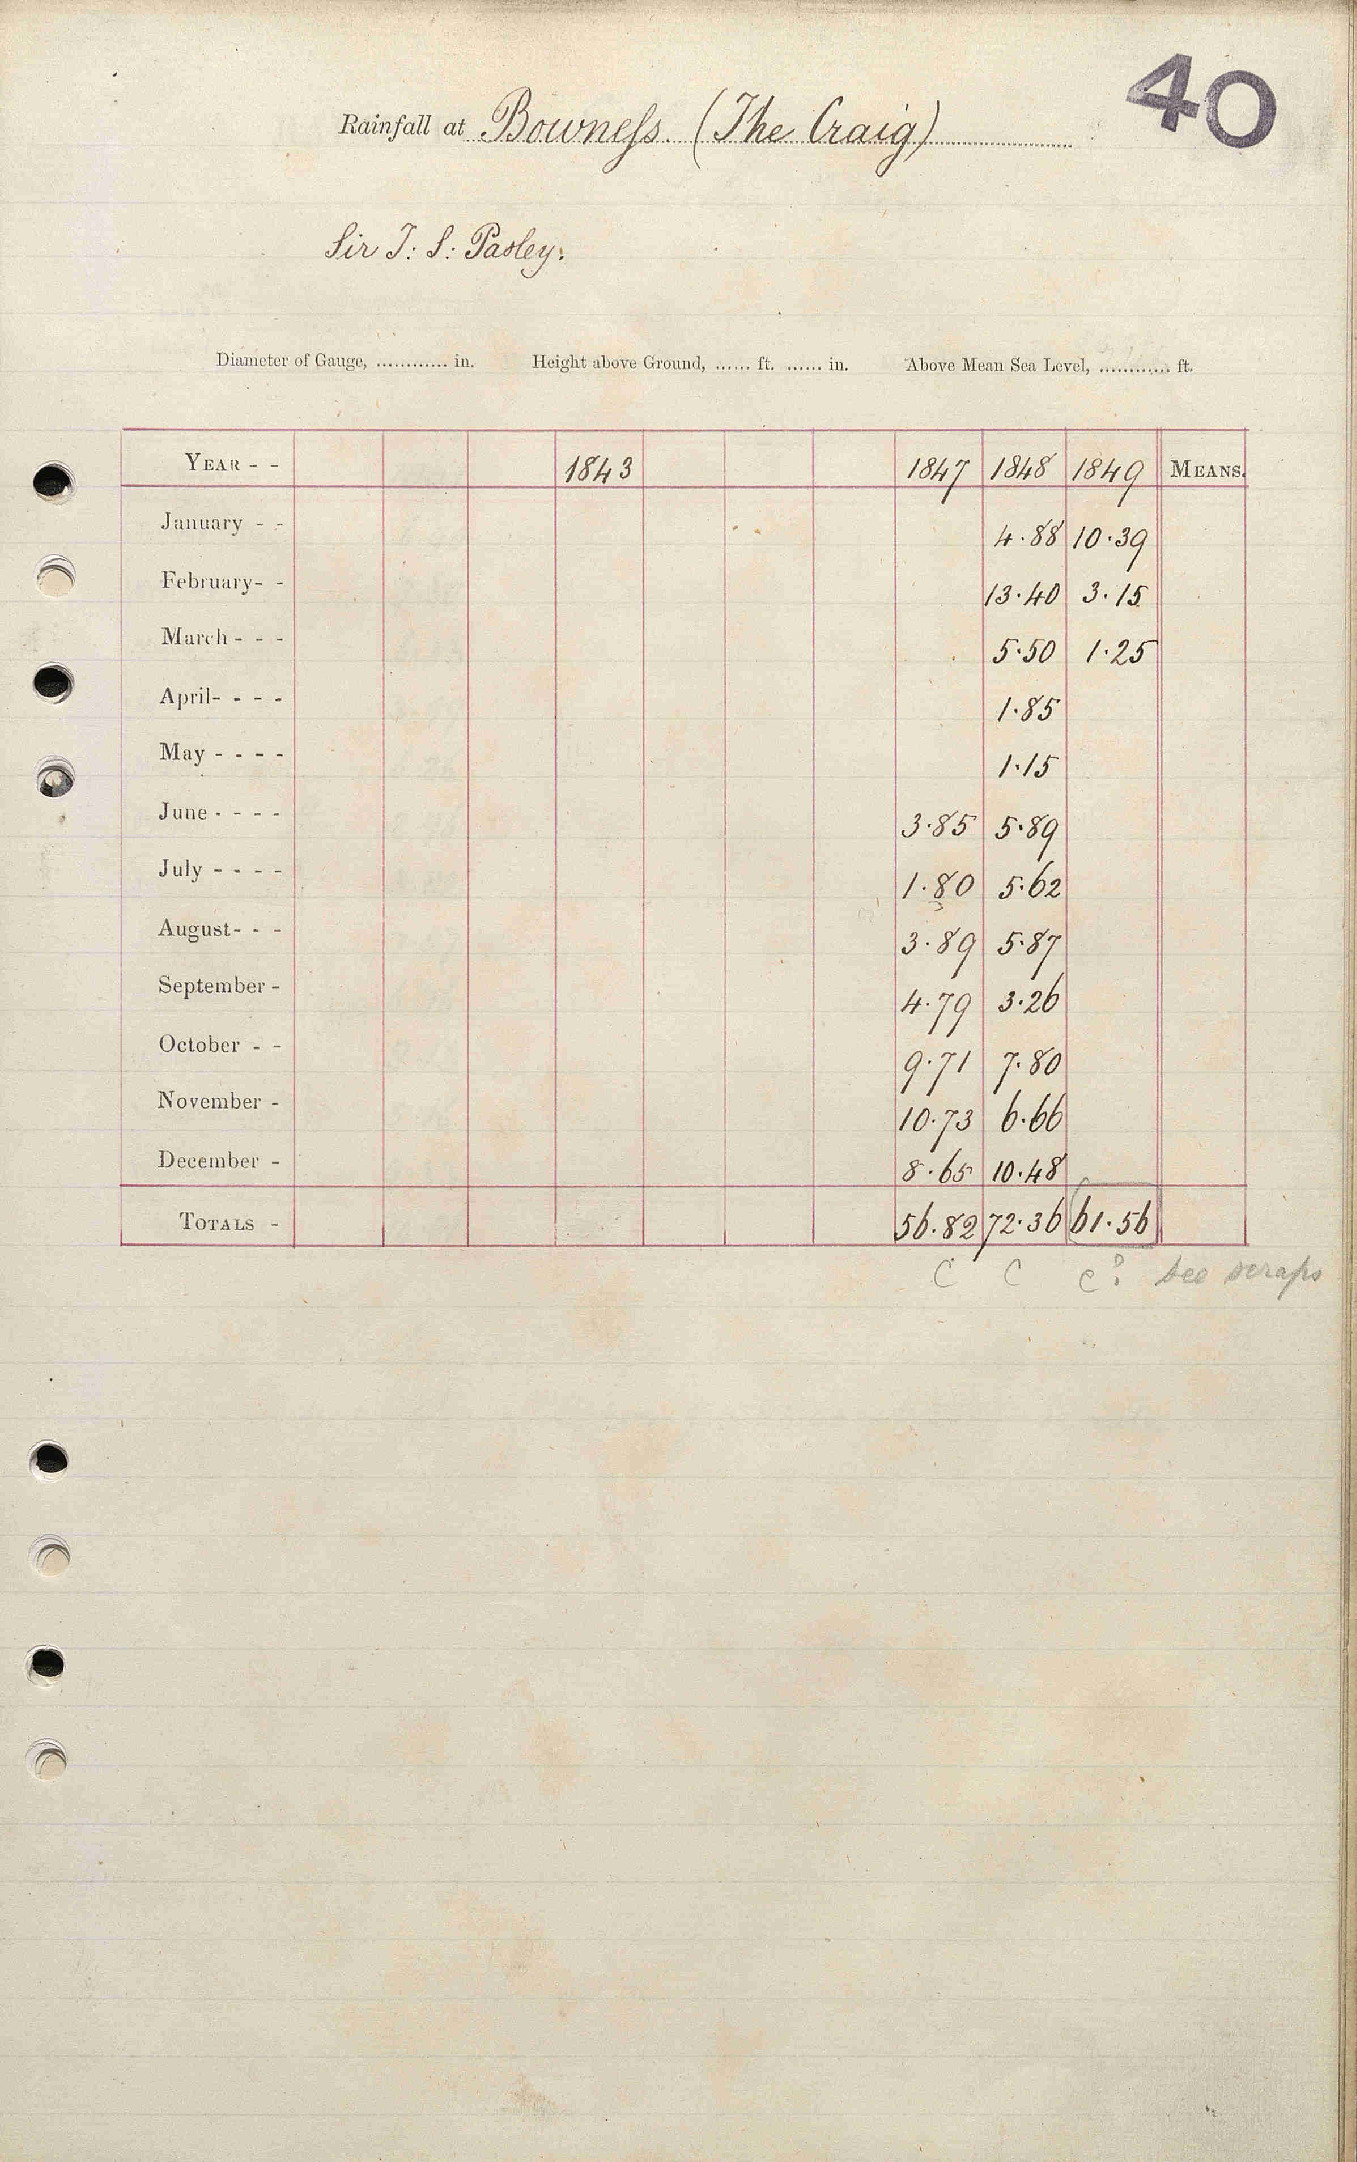 40
Rainfall at Bowness. (The Craig)
Sir T: S: Pasley:
Diameter of Gauge, ............ in. Height above Ground, ...... ft. ...... in. Above Mean Sea Level, ............ ft.
YEAR - - 1843 1847 1848 1849 MEANS.
January - - 4.88 10.39
February- - 13.40 3.15
March - - - 5.50 1.25
April- - - - 1.85
May - - - - 1.15
June - - - - 3.85 5.89
July - - - - 1.80 5.62
August- - - 3.89 5.87
September - 4.79 3.26
October - - 9.71 7.80
November - 10.73 6.66
December - 8.65 10.48
TOTALS - 56.82 72.36 61.56
C C C? see scraps